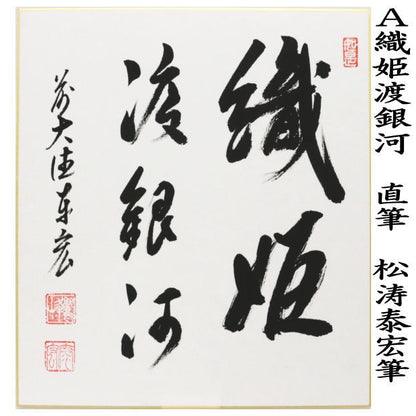 A織姫渡銀河　直筆　松涛泰宏筆
織姫
渡銀河
前大徳泰宏